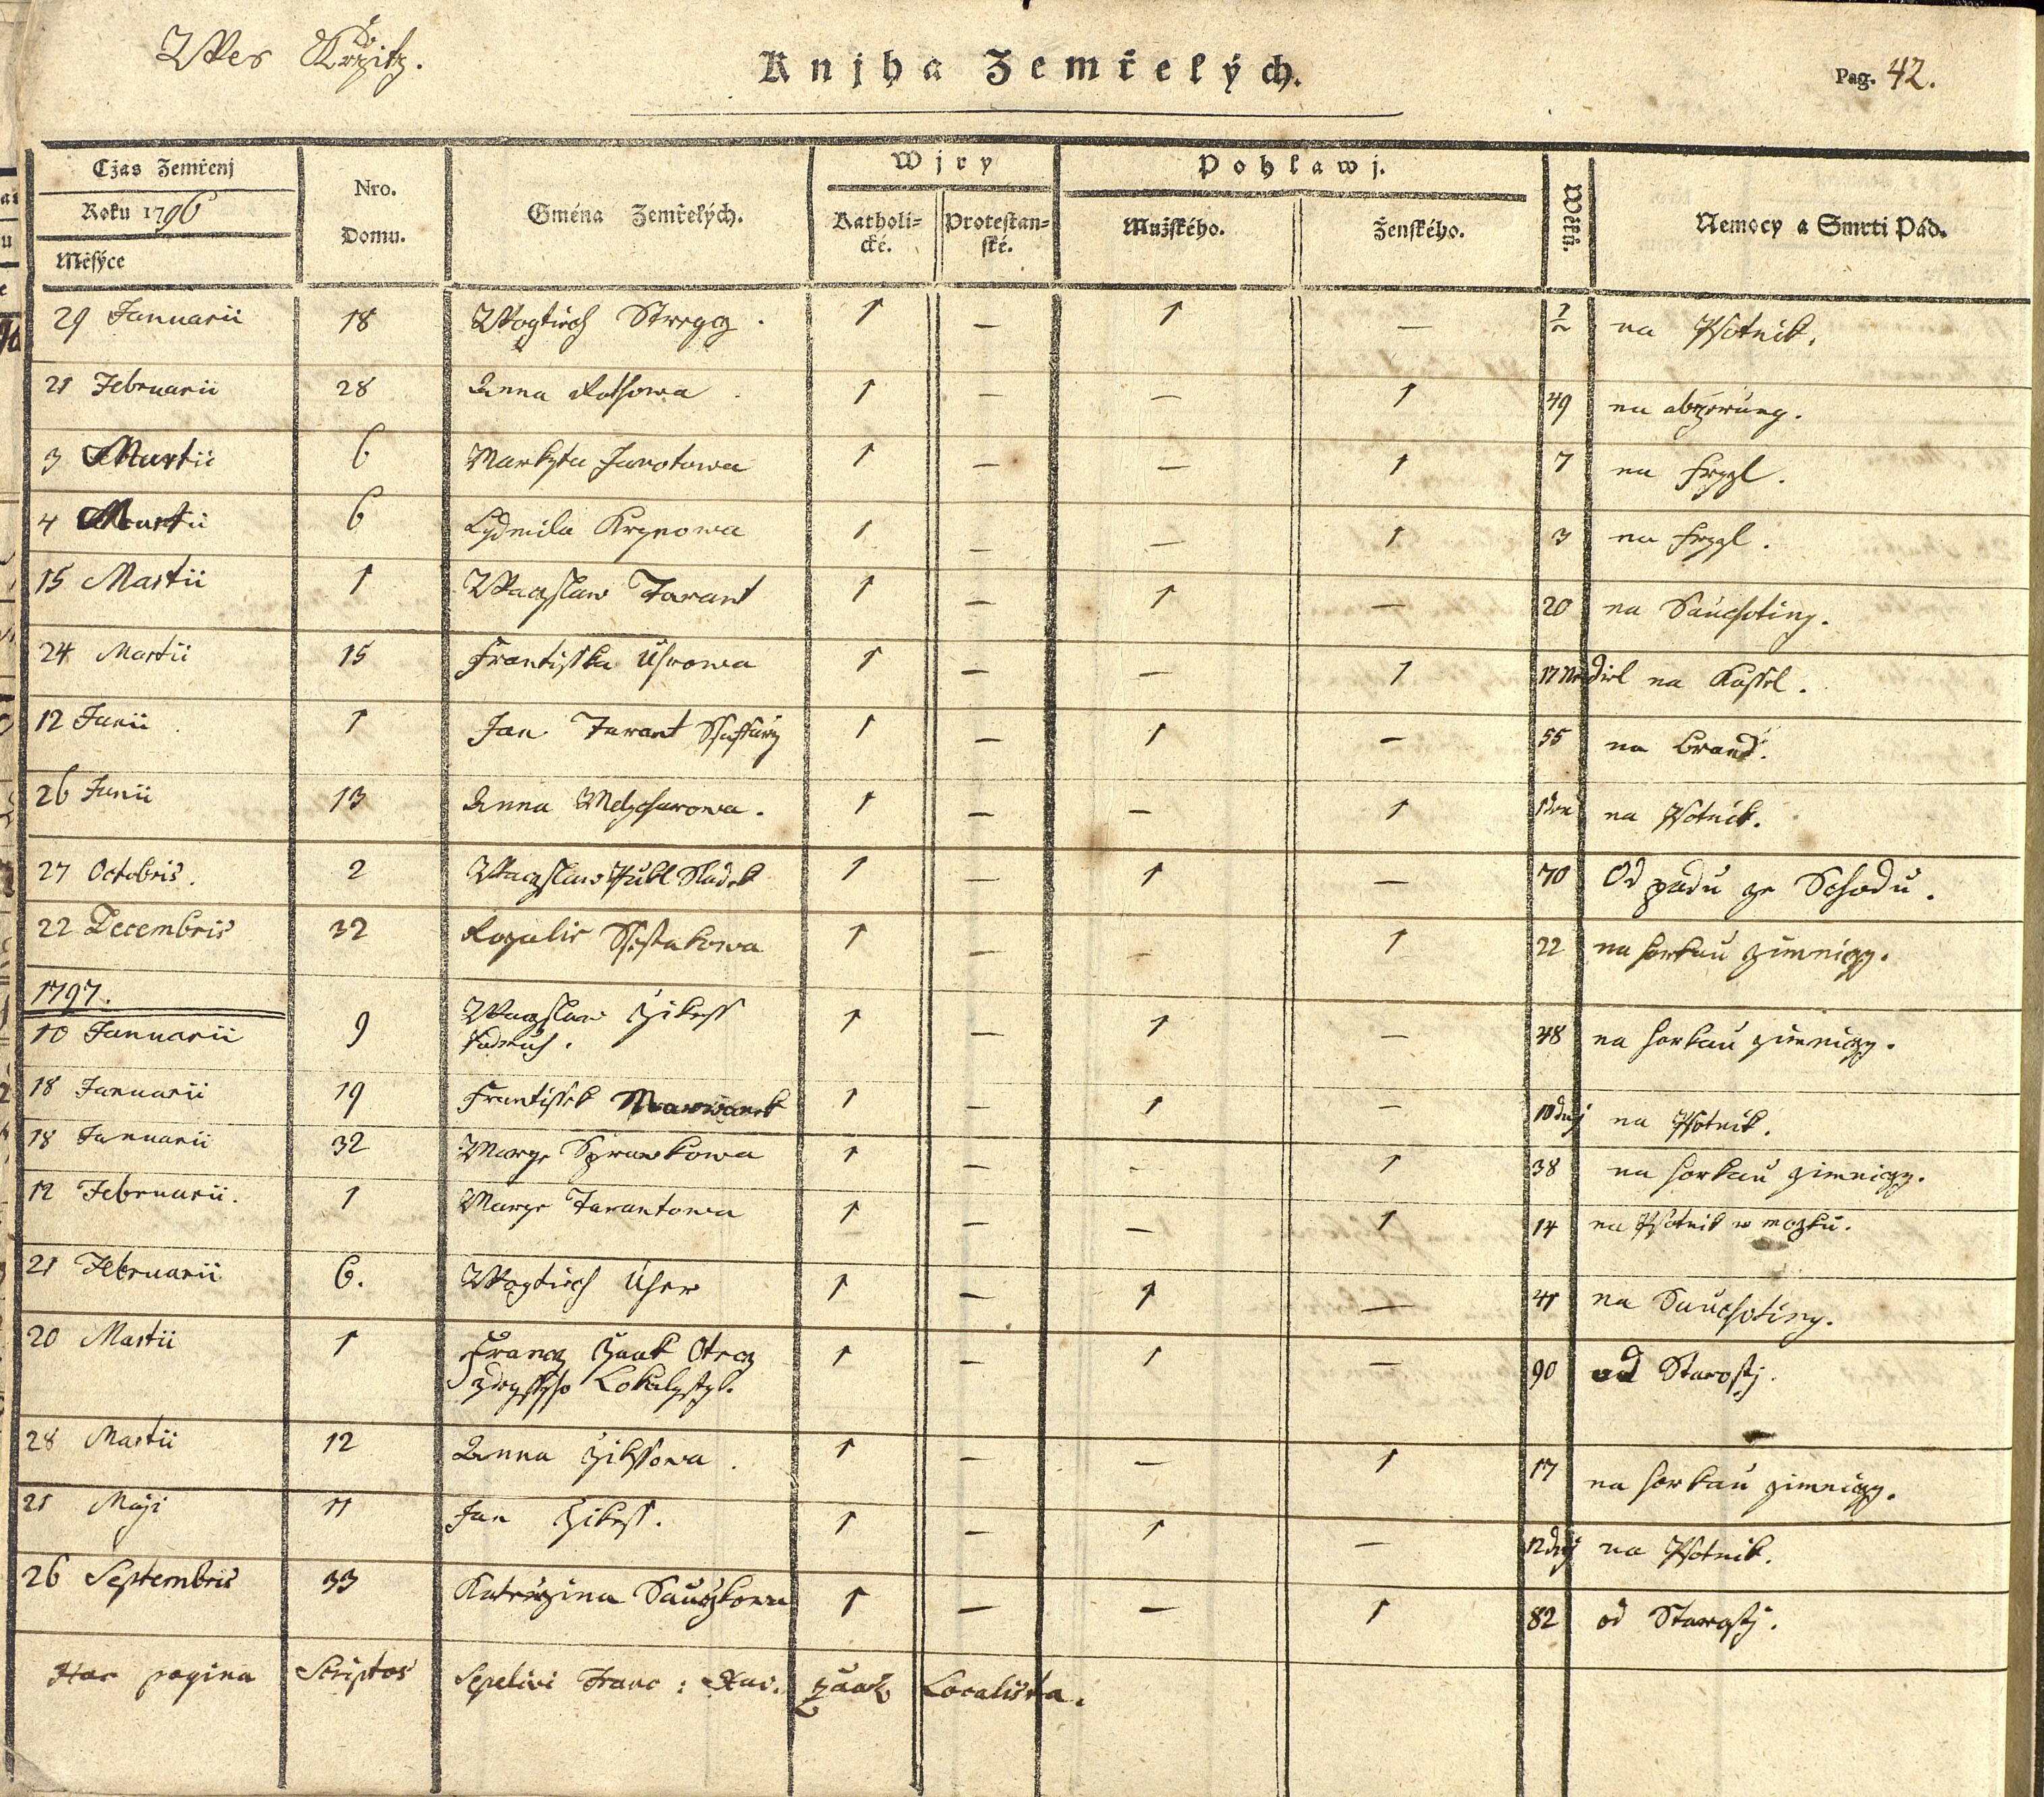 Wes Křzitz.
Knjha Zemřelých.
Pag. 42.
Cžas Zemřenj
Roku 1796
Měsýce
Nro. Domu.
Gména Zemřelých.
Wjry
Katholi-
cké.
Protestan-
ské.
Pohlawj.
Mužského.
Ženského.
Wěků.
Nemocy a Smrti Pád.
29 Januarii 18 Wogtiech 1 — 1 — na Psotnik.
21 Februarii 28 Anna Rothowa 1 — — 1 49
3 Martii 6 Markyta Jarotowa 1 — — 1 7 na
4 Martii 6 Lydmila 1 — — 1 3 na
15 Martii 1 Waczlaw Tarant 1 — 1 — 20 na Sauchotiny.
24 Martii 15 Frantisska Uhrowa 1 — — 1 17 Nediel na Kassel.
12 Junii 1 Jan Tarant 1 — 1 — 55 na brand.
26 Junii 13 Anna Melicharowa. 1 — — 1 na Psotnik.
27 Octobris. 2 Waczlaw Sladek 1 — 1 — 70 Od padu ze Schodu.
22 Decembris 32 Rozalie Ssestakowa 1 — - 1 22 na horkau zimniczy.
1797.
10 Januarii 9 Waczlaw Zikess 1 — 1 — 48 na horkau zimniczy.
18 Januarii 19 Frantissek 1 — 1 — 10 dnj na Psotnik.
18 Januarii 32 Marye 1 — - 1 38 na horkau zimniczy.
12 Februarii. 1 Marye Tarantowa 1 — — 1 14 na Psotnik w mozku.
21 Februarii 6. Wogtiech Uher 1 — 1 — 41 na Sauchotiny.
20 Martii 1 Francz Žaak Otecz 1 — 1 — 90 od Starostj.
zdegssyho
28 Martii 12 Anna Zikssowa. 1 — — 1 17 na horkau zimniczy.
21 Maji 11 Jan Zikess. 1 — 1 — 12 dnj na Psotnik.
26 Septembris 33 Katerzina Sauczkowa 1 — — 1 82 od Starostj.
Hac pagina Scriptos Sepelivi Franc: Xav. Žaak Localista.